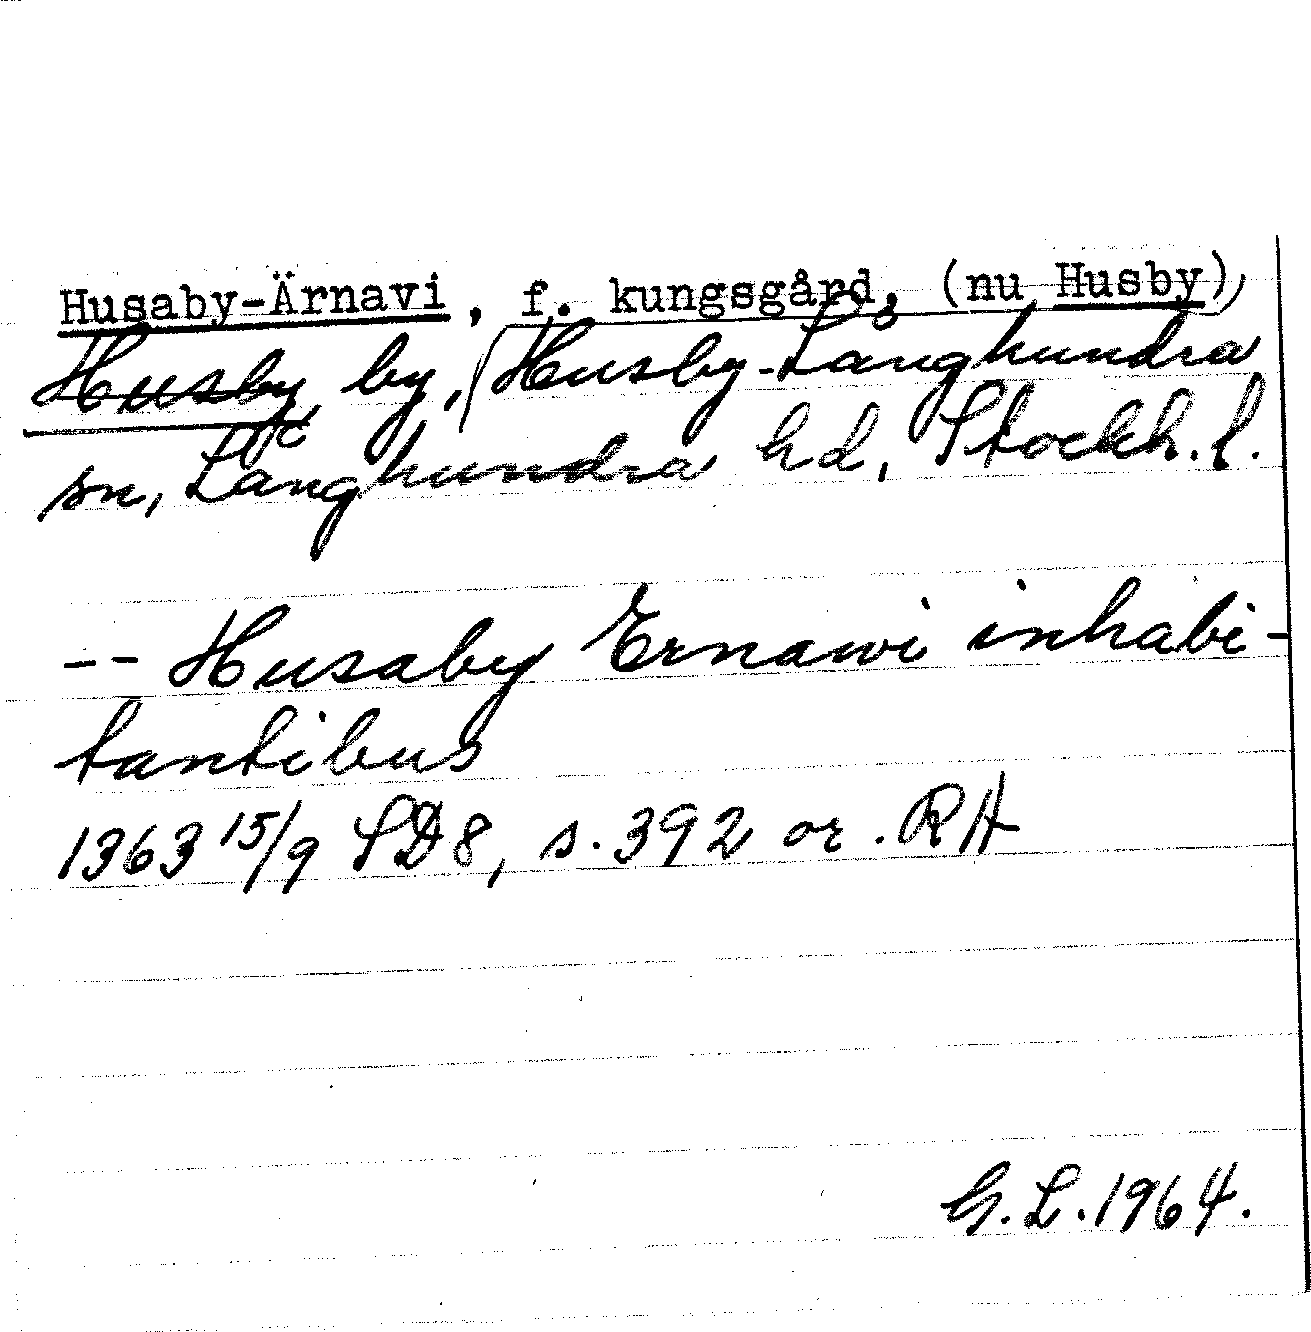 Husaby-Ärnavi, f. kungsgård, (nu Husby),
Husby by, Husby-Långhundra
sn, Långhundra hd, Stockh. l.
-- Husaby Ernawi inhabi-
tantibus
1363 15/9 SD 8, s. 392 or. RA
G. L. 1964.